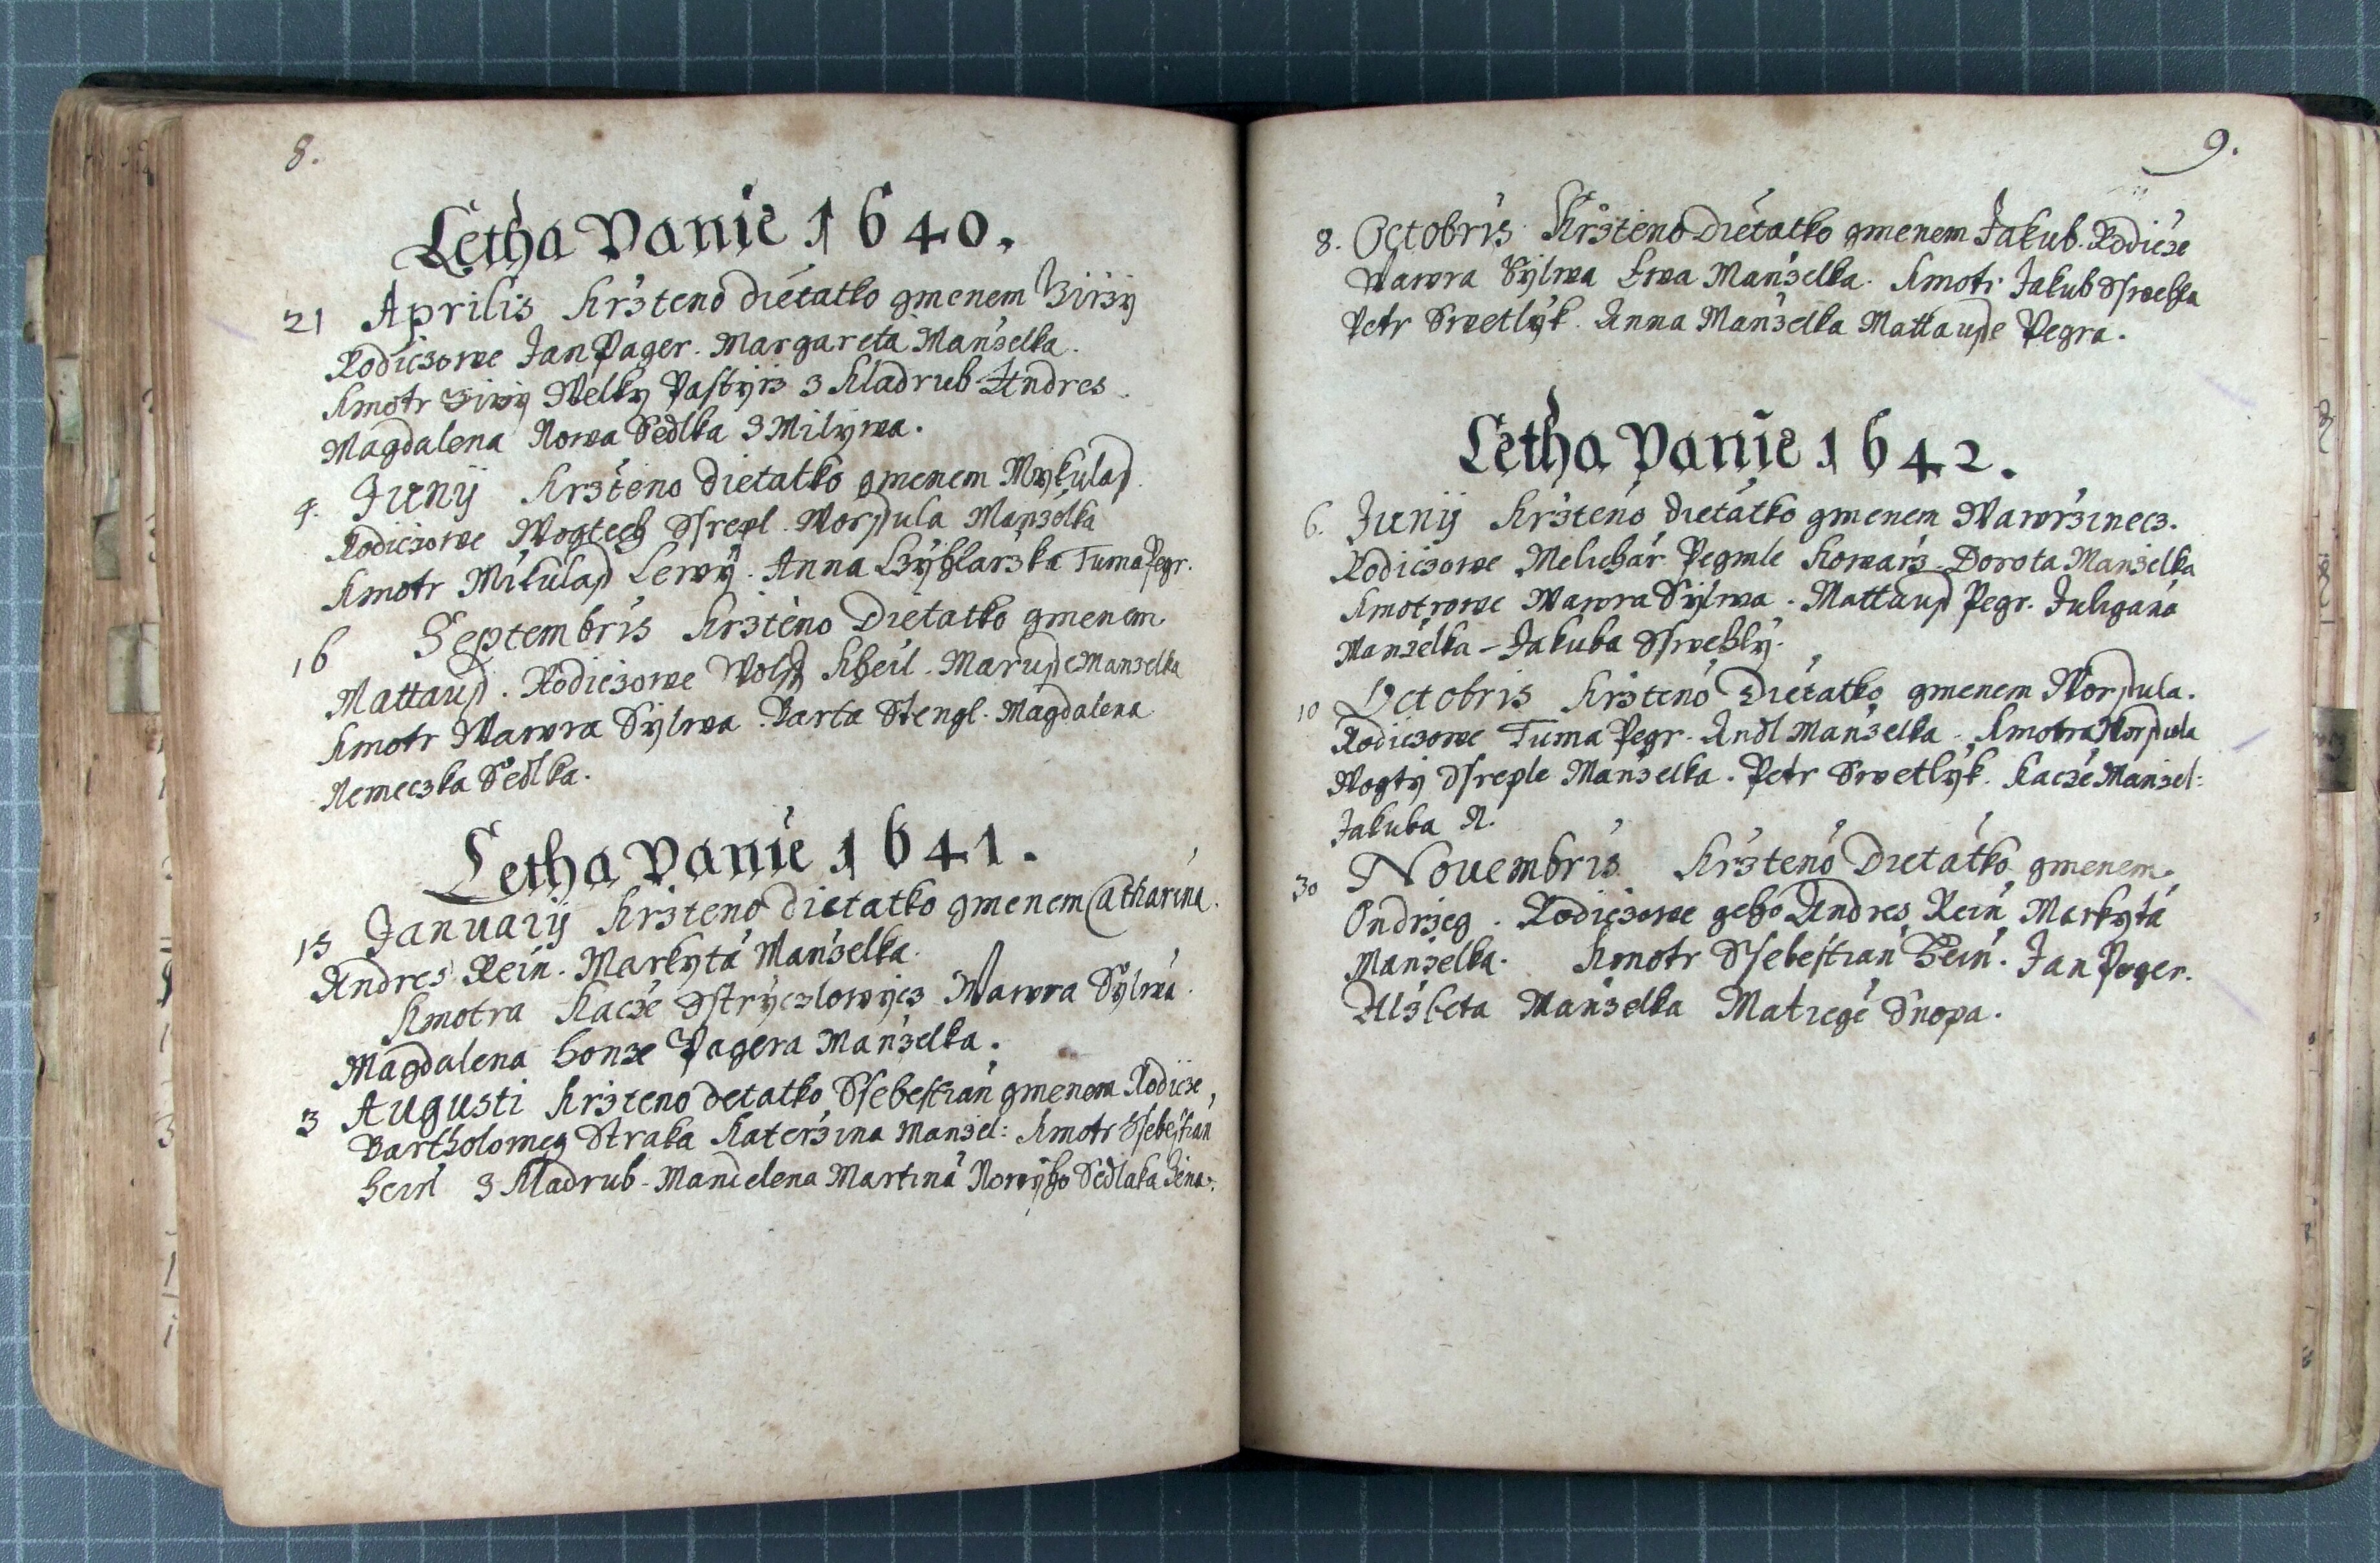 8.
Letha Panie 1640.
21 Aprilis Krzteno dietatko gmenem Birzy
Rodiczowe Jan Pager. Margareta Manzelka.
Kmotr Welky Pastyrz z Kladrub Andres
Magdalena Nowa Sedlka z Milywa.
4. Junij Krzteno dietatko gmenem Mykulass
Rodiczowe Wogtech Worssula Manzelka
Kmotr Mikulass Lewy. Anna Czyhlarzka Tuma Pegr.
16 Septembris Krzteno Dietatko gmenem
Mattauss. Rodiczowe Wolff Kheil. Marusse Manzelka
Kmotr Wawra Sylwa. Barta Stengl. Magdalena
Nemeczka Sedlka.
Letha Panie 1641.
15 Januarij Krzteno dietatko gmenem Catharina.
Andres Rein. Markyta Manzelka.
Kmotra Kacze Wawra Sylwa.
Magdalena honze Pagera Manzelka.
3 Augusti Krzteno detatko Ssebestian gmenem Rodicze,
Bartholomeg Straka Katerzina Manzel: Kmotr Ssebestian
hein z Kladrub. Mandelena Martina Nowyho Sedlaka zena.
9.
8. Octobris Krzteno Dietatko gmenem Jakub. Rodicze
Wawra Sylwa Ewa Manzelka. Kmotr Jakub Sswehla
Petr Swetlyk. Anna Manzelka Mattausse Pegra.
Letha Panie 1642.
6. Junij Krzteno dietatko gmenem Wawrzinecz.
Rodiczowe Melichar Pegmle Kowarz. Dorota Manzelka
Kmotrowe Wawra Sylwa. Mattauss Pegr. Juligana
Manzelka - Jakuba Sswehly.
10 Octobris Krzteno Dietatko gmenem Worssula.
Rodiczowe Tuma Pegr. Andl Manzelka. Kmotra Worssula
Wogty Manzelka. Petr Swetlyk. Kacze Manzel:
Jakuba N.
30 Nouembris Krzteno Dietatko gmenem
Ondrzeg. Rodiczowe geho Andres Rein, Markyta
Manzelka. Kmotr Ssebestian Hein. Jan Pager.
Alzbeta Manzelka Matiege Snopa.